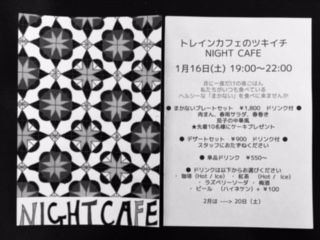 NIGHT CAFE
トレインカフェのツキイチ
NIGHT CAFE
1月16日(土) 19:00〜22:00
月に一度だけの夜ごはん
私たちがいつも食べている
ヘルシーな「まかない」を食べに来ませんか
● まかないプレートセット ¥1,800 ドリンク付 ●
肉まん、春雨サラダ、春巻き
茄子の中華風
★先着10名様にケーキプレゼント
● デザートセット ¥900 ドリンク付 ●
スタッフにおたずねください
● 単品ドリンク ¥550〜
● ドリンクは以下からお選びください ●
・珈琲 (Hot / Ice) ・紅茶 (Hot / Ice)
・ラズベリーソーダ ・梅酒
・ビール (ハイネケン) + ¥100
2月は ---> 20日（土）